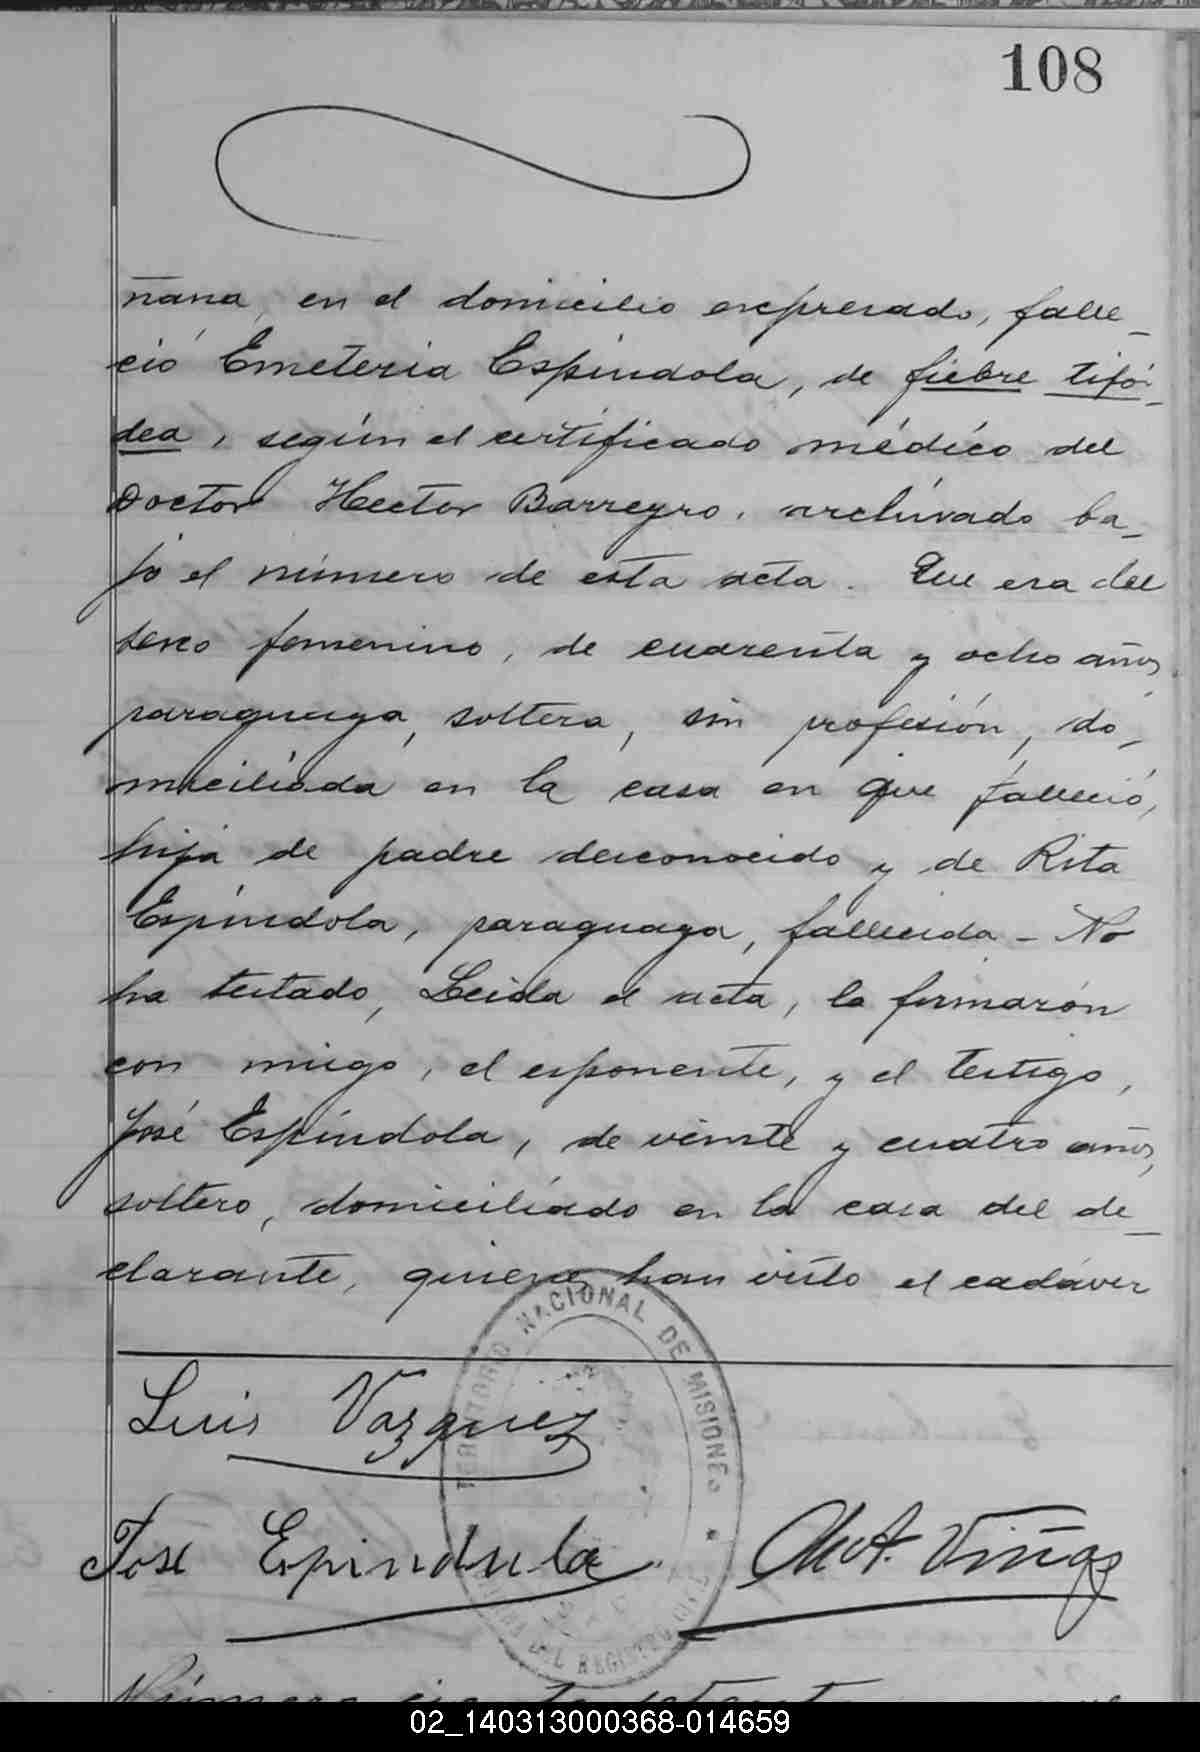 108
ñana, en el domicilio expresado, falle_
ció Emeteria Espíndola, de fiebre tifói_
dea, según el certificado médico del
Doctor Hector Barreyro, archivado ba_
jo el número de esta acta. Que era del
sexo femenino, de cuarenta y ocho años,
paraguaya, soltera, sin profesión, do_
miciliada en la casa en que falleció,
hija de padre desconocido y de Rita
Espíndola, paraguaya, fallecida - No
ha testado, Leida el acta, la firmarón
con migo, el esponente, y el testigo,
José Espíndola, de veinte y cuatro años,
soltero, domiciliado en la casa del de_
clarante, quienes han visto el cadáver
TERRITORIO NACIONAL DE MISIONES
Luis Vazquez
Jose Epindula Viñas
DEL REGISTRO CIVIL
Número ciento
02_140313000368-014659